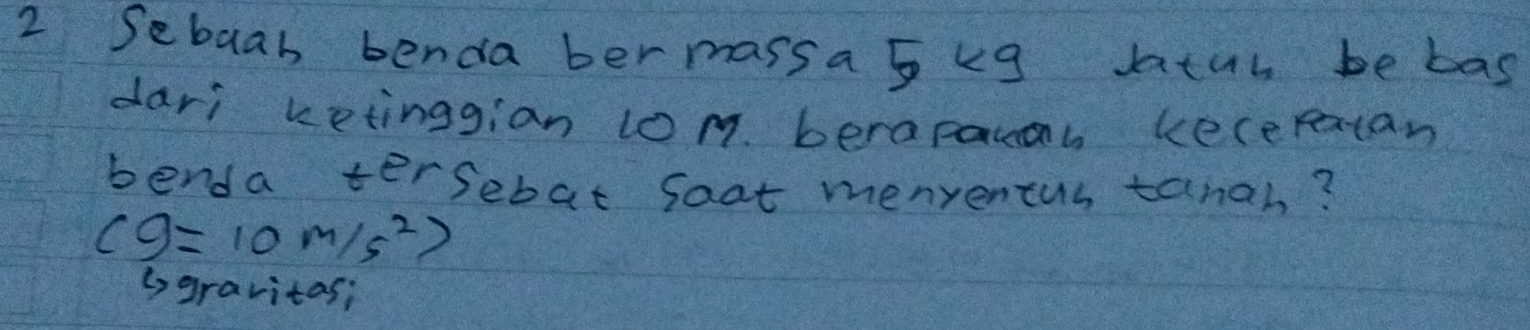 2 Sebuah benda bermassa 5 kg Jatuh bebas
dari ketinggian 10 M. berapakah kecepatan
benda tersebut saat menyentuh tanah?
(g = 10 m/s²)
↳ gravitasi